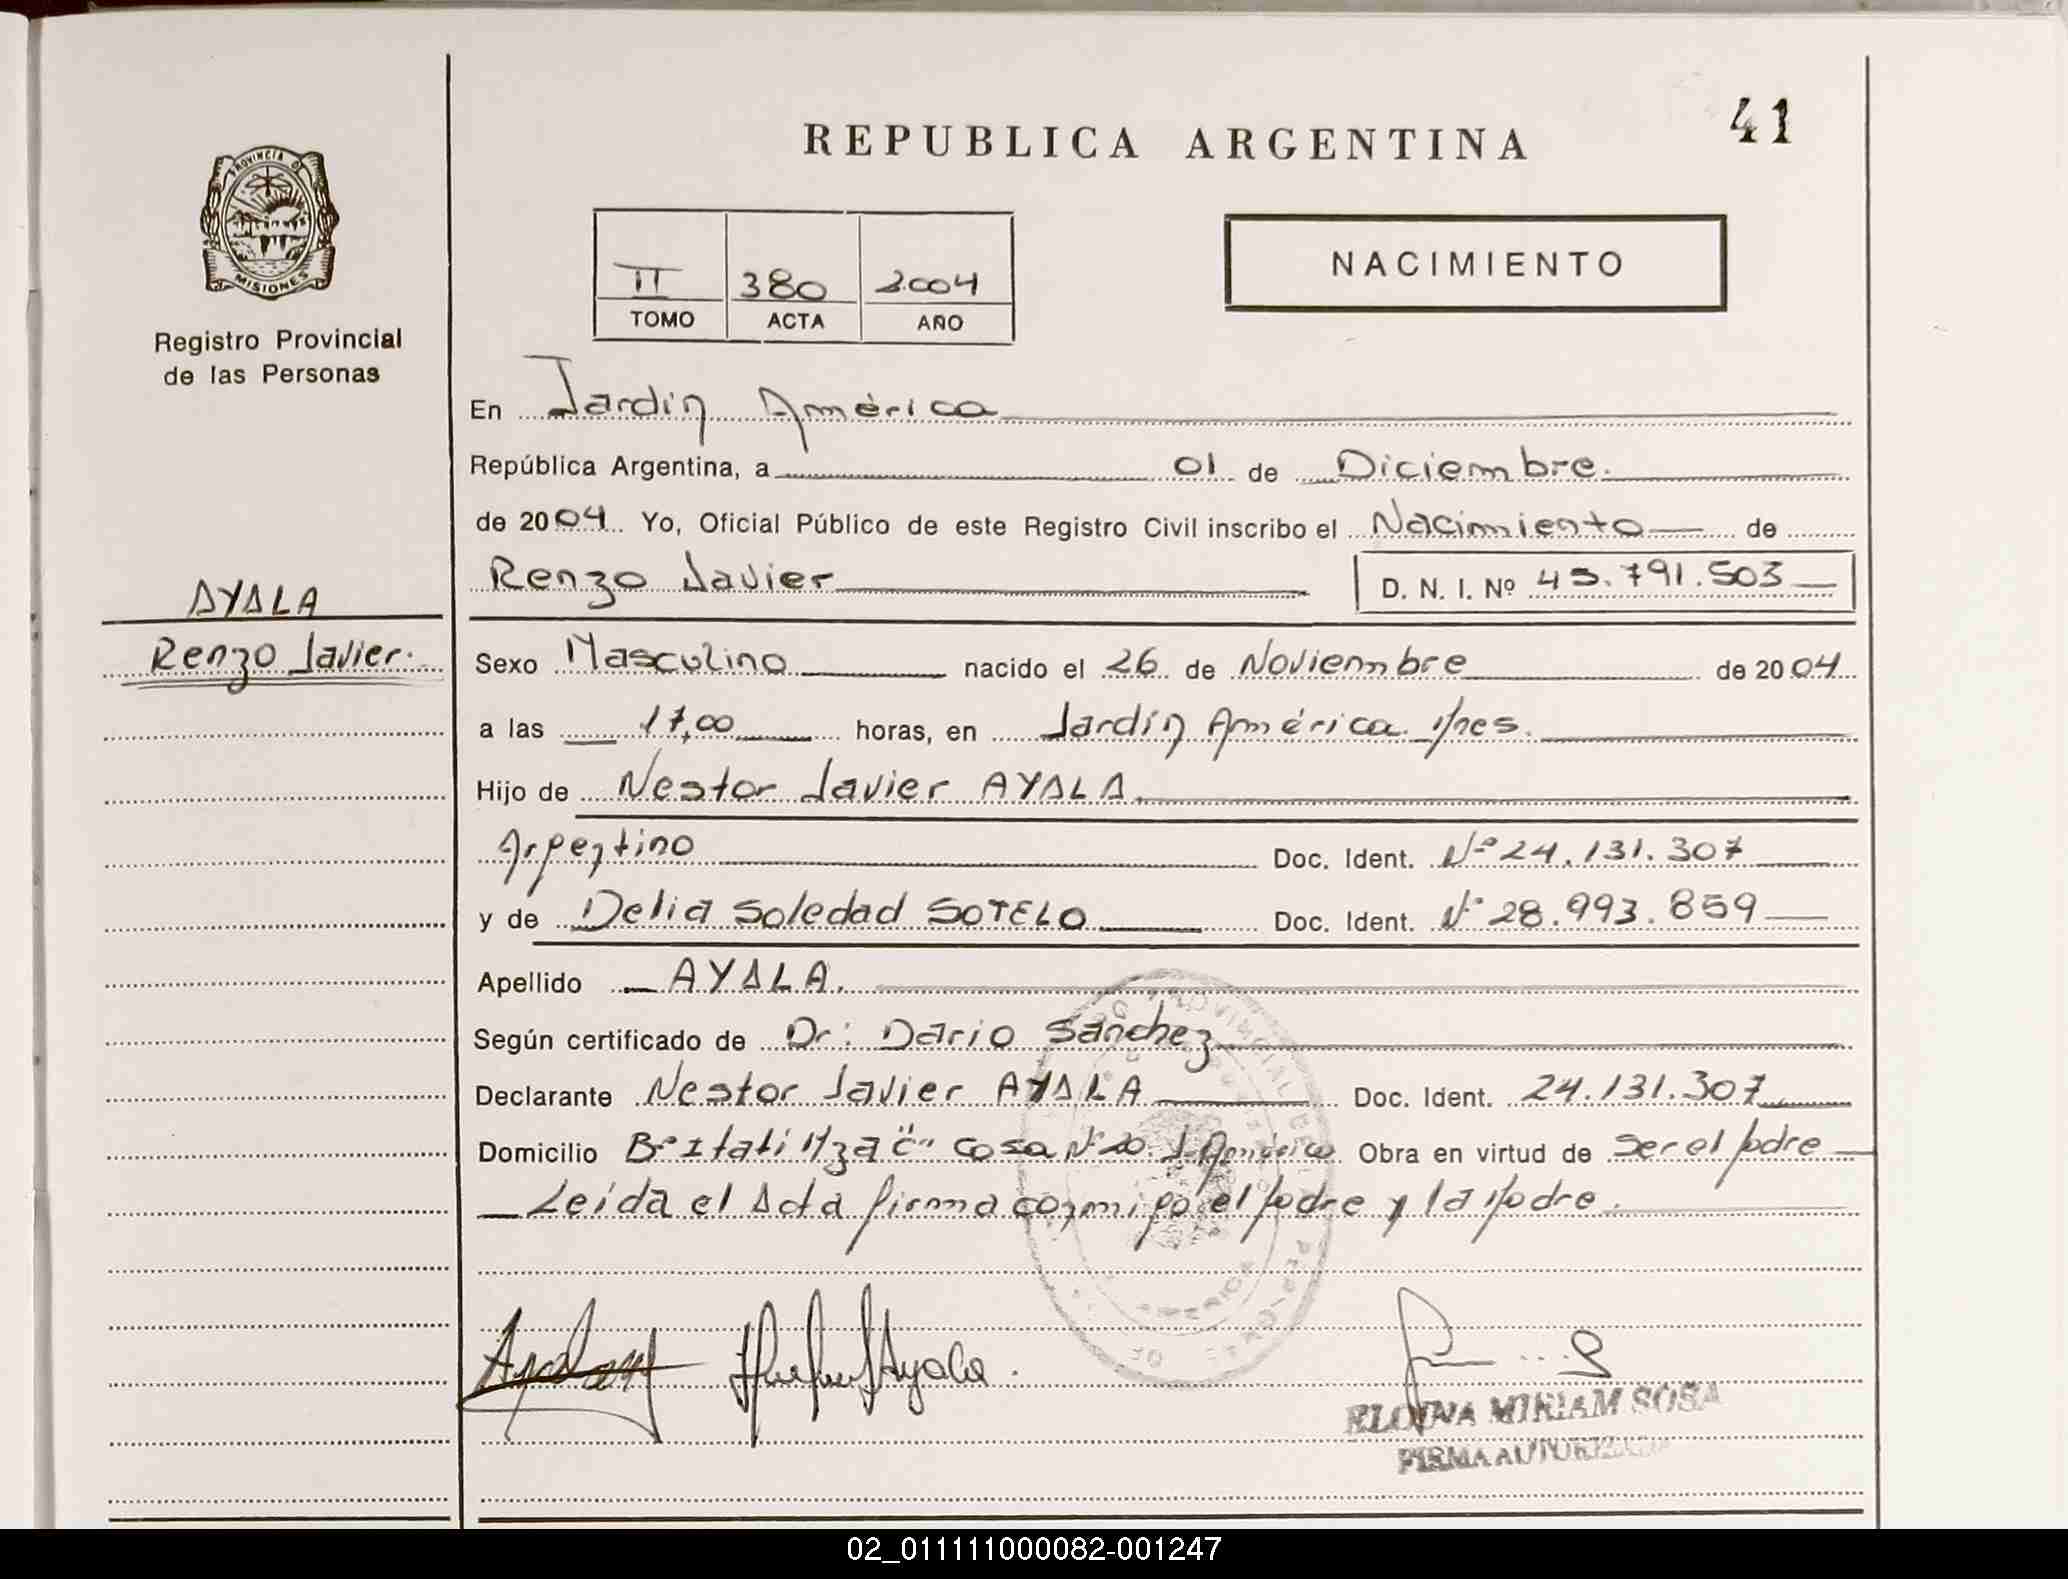 REPUBLICA ARGENTINA
41
PROVINCIA DE
MISIONES
Registro Provincial
de las Personas
II 380 2004
TOMO ACTA AÑO
NACIMIENTO
En Jardín América
República Argentina, a 01 de Diciembre.
de 2004 Yo, Oficial Público de este Registro Civil inscribo el Nacimiento de
Renzo Javier D. N. I. Nº 45.791.503
AYALA
Renzo Javier.
Sexo Masculino nacido el 26 de Noviembre de 2004
a las 17,00 horas, en Jardín América. Mnes.
Hijo de Nestor Javier AYALA.
Argentino Doc. Ident. Nº 24.131.307
y de Delia Soledad SOTELO Doc. Ident. Nº 28.993.859
Apellido AYALA.
Según certificado de Dr: Dario Sanchez
Declarante Nestor Javier AYALA Doc. Ident. 24.131.307
Domicilio Bº Itatí Mza "C" Casa Nº 20. J. América Obra en virtud de ser el padre
Leída el Acta firma conmigo el padre y la Madre.
Ayala
ELOINA MIRIAM SOSA
FIRMA AUTORIZADA
02_011111000082-001247